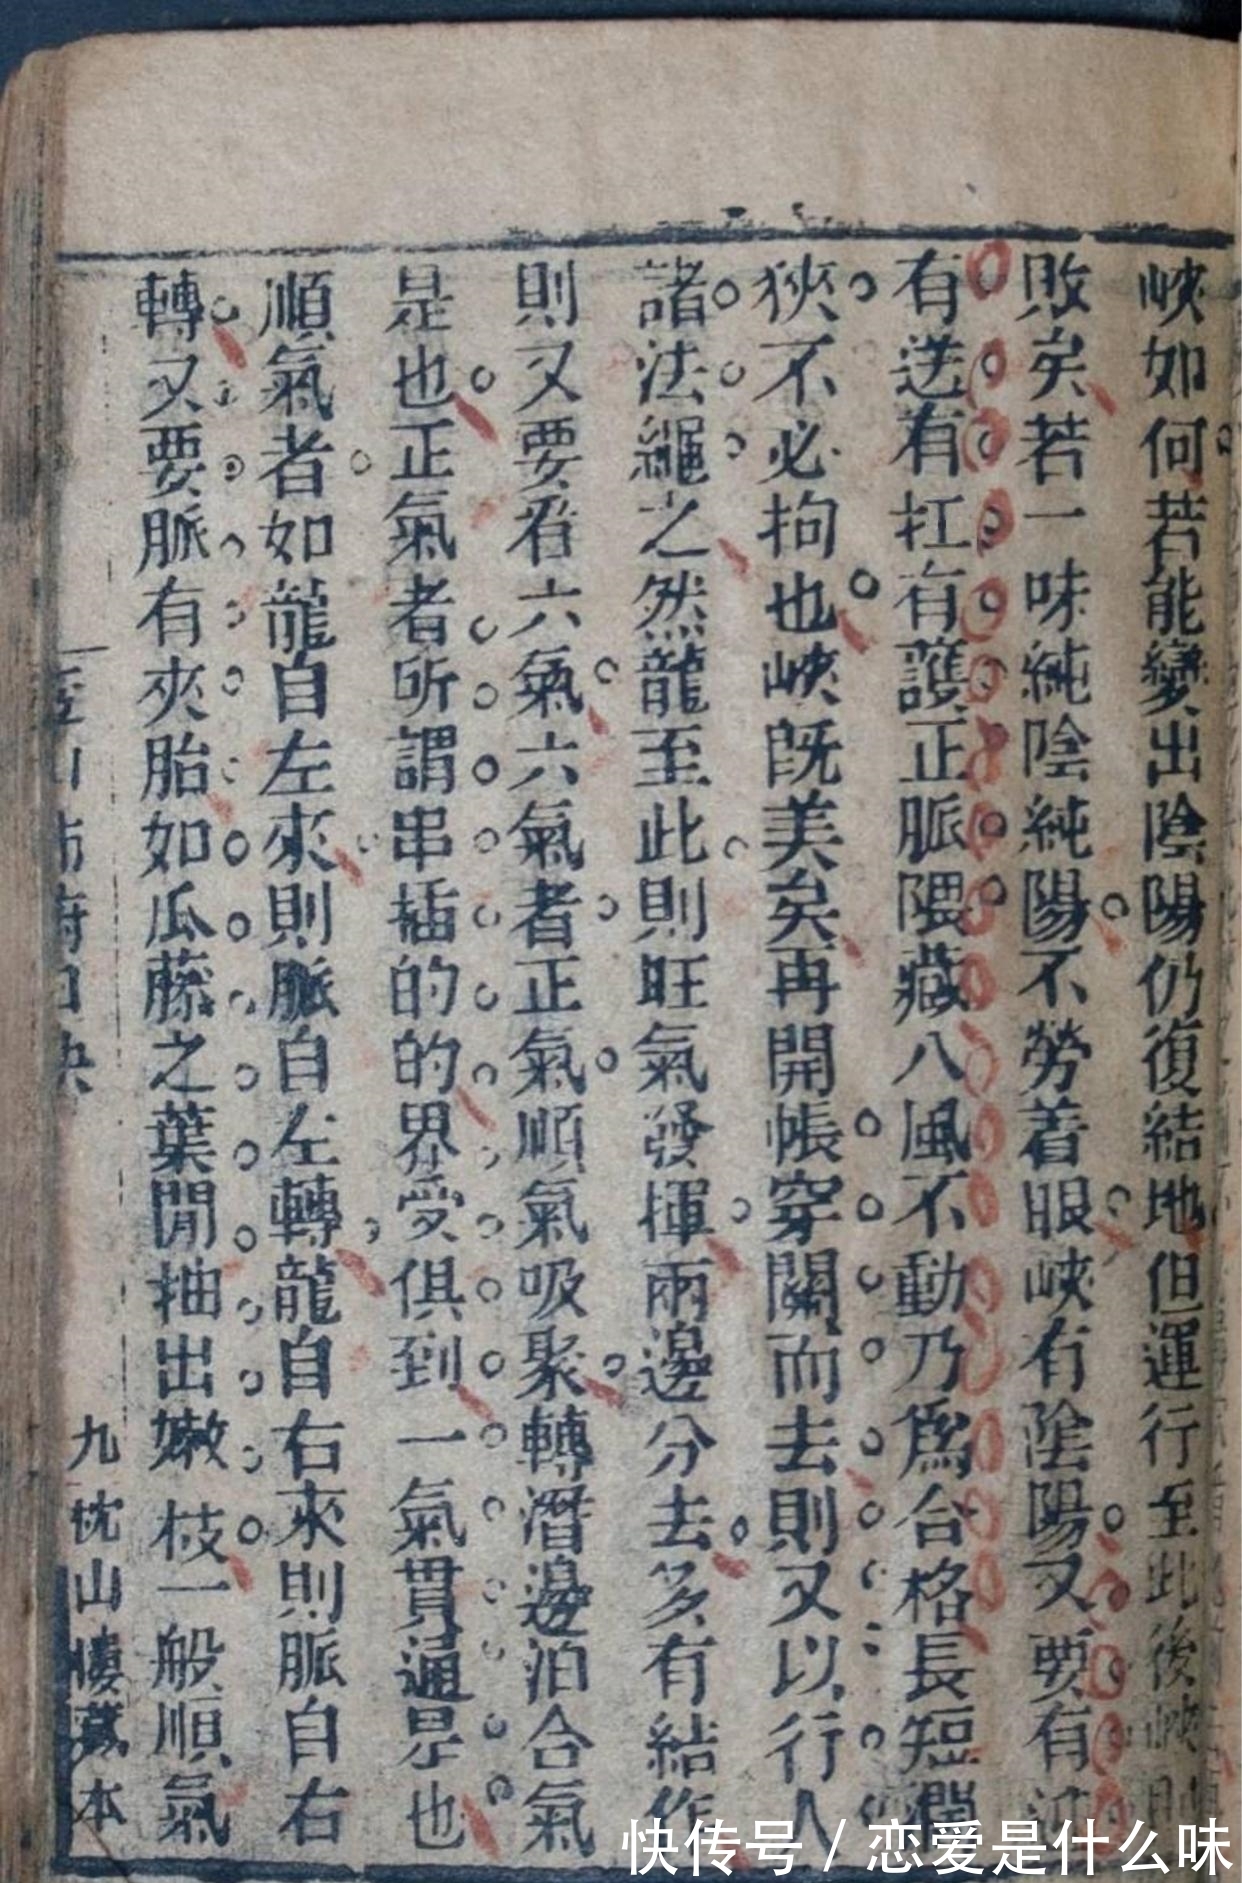 峽如何若能變出陰陽仍復結地但運行至此後峽則
敗矣若一味純陰純陽不勞着眼峽有陰陽又要有迎
有送有扛有護正脈隈藏八風不動乃爲合格長短濶
狹不必拘也峽旣美矣再開帳穿關而去則又以行入
諸法繩之然龍至此則旺氣發揮兩邊分去多有結作
則又要看六氣六氣者正氣順氣吸聚轉潛邊泊合氣
是也正氣者所謂串插的的界受俱到一氣貫通是也
順氣者如龍自左來則脈自左轉龍自右來則脈自右
轉又要脈有夾胎如瓜藤之葉閒抽出嫩枝一般順氣
山 口
九枕山樓藏本
快传号 / 恋爱是什么味